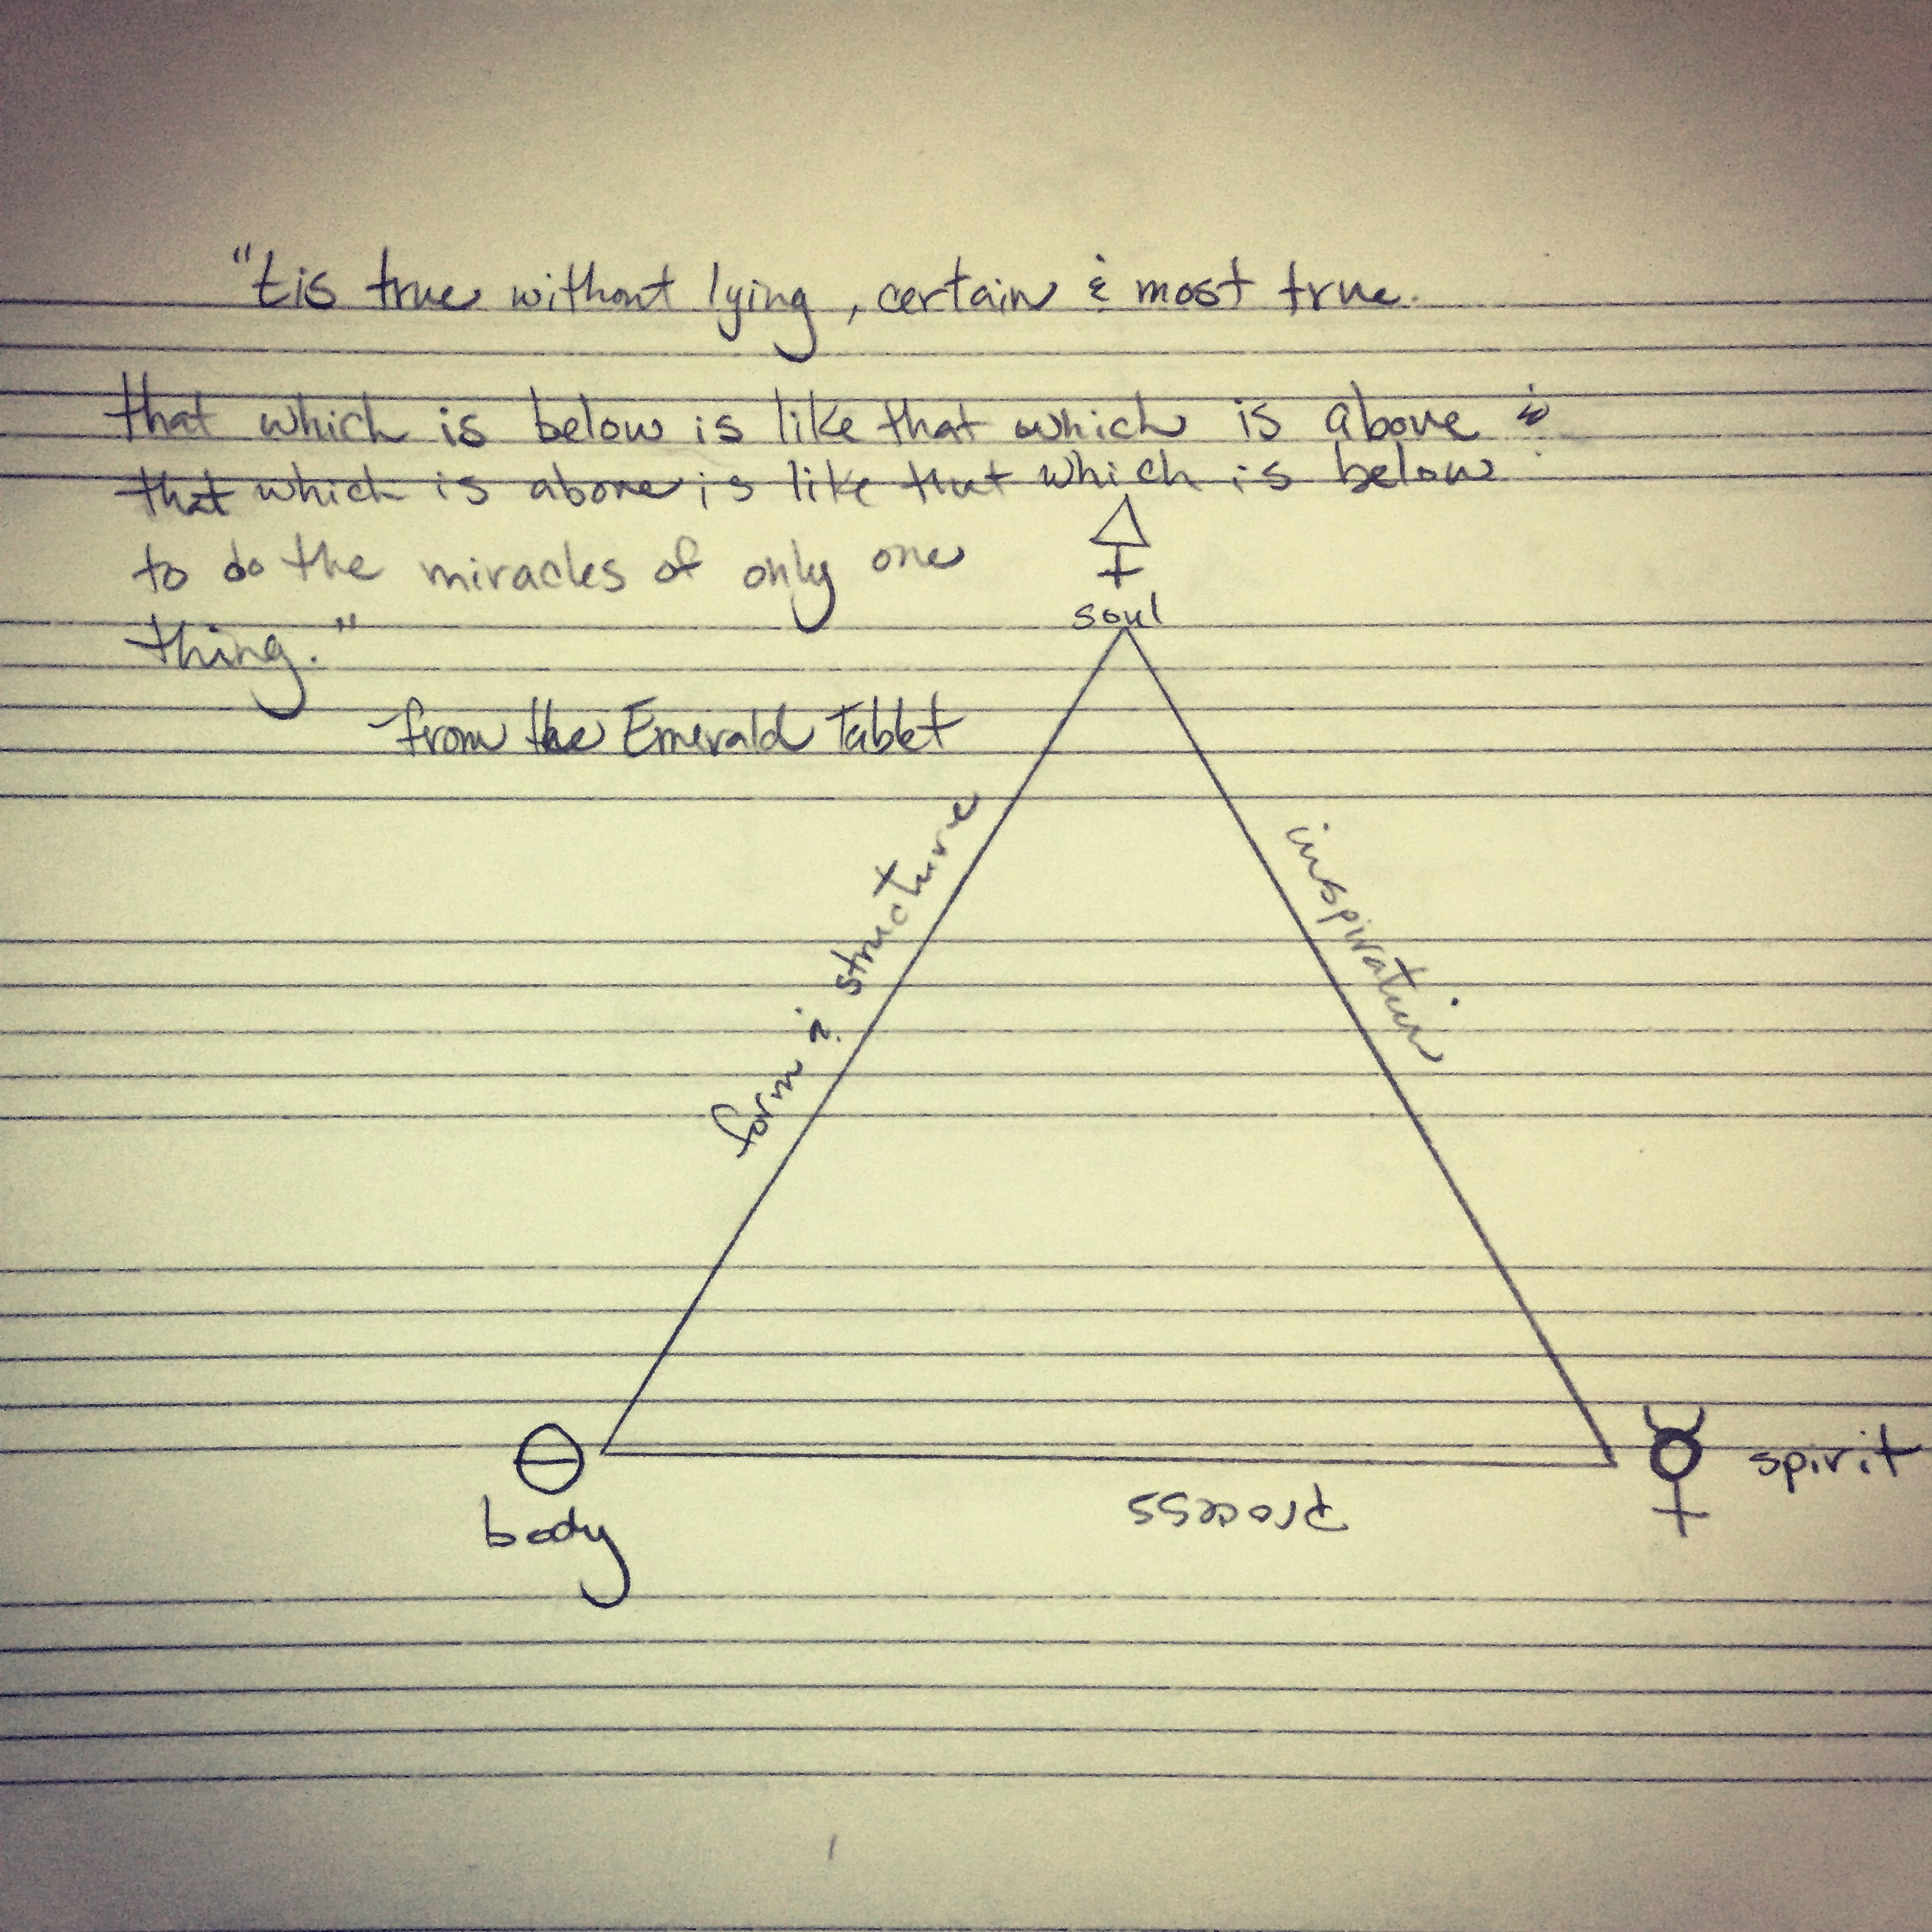 "tis true without lying, certain & most true.
that which is below is like that which is above &
that which is above is like that which is below
to do the miracles of only one
thing."
-from the Emerald Tablet
soul
form & structure
inspiration
body
spirit
Process